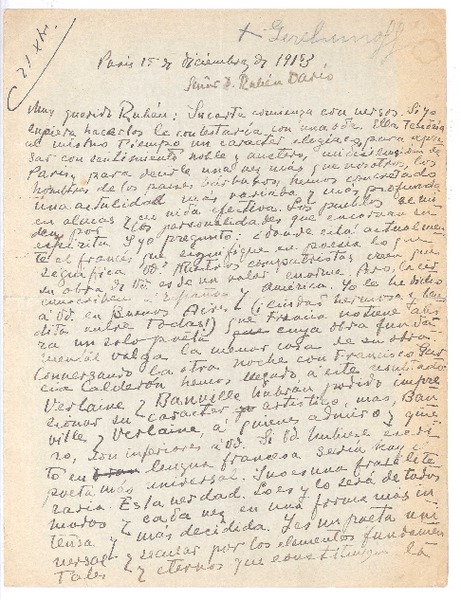 21.XII.
+ Gerchunoff
Paris 15 de diciembre de 1913
Señor D. Rubén Darío
Muy querido Rubén: Su carta comienza con versos. Si yo
supiera hacerlos le contestaria con una oda. Ella tendria
al mismo tiempo un caracter elegiaco, para
sar con sentimiento noble y austero, mi de
Paris, para decirle una vez más que nosotros, los
hombres de los paises bárbaros, hemos concretado
una actualidad mas variada y más profunda
en almas y en vida efectiva. Los pueblos se mi
den por las personalidades que encarnan su
espíritu. Y yo pregunto: ¿donde está actualmen
te el francés que signifique en poesia lo que
significa Vd? Nuestros compatriotas creen que
su obra de Vd. es de un valor enorme. Pero, la cir
cunscriben a España y América. Yo le he dicho
a Vd. en Buenos Aires, (ciudad hermosa y ben
dita entre todas!) que Francia no tiene
ra un solo poeta cuya obra funda
mental valga la menor cosa de su obra.
Conversando la otra noche con Francisco Gar
cia Calderón hemos llegado a este resultado:
Verlaine y Banville habran podido impre
sionar su caracter artistico, mas, Ban
ville y Verlaine, a quienes admiro y quie
ro, son inferiores a Vd. Si Vd hubiese escri
to en lengua francesa seria hoy el
poeta más universal. Y no es una frase lite
raria. Es la verdad. Lo es y lo será de todos
modos y cada vez en una forma mas in
tensa y más decidida. Y es un poeta uni
versal y secular por los elementos fundamen
tales y eternos que constituyen la